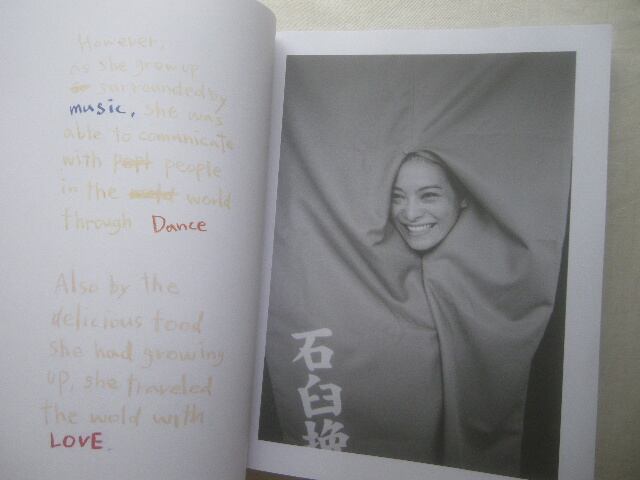 However,
as she grow up
surrounded by
music, she was
able to comunicate
with people
in the world
through Dance
Also by the
delicious food
she had growing
up, she traveled
the wold with
LOVE.
石
臼
挽